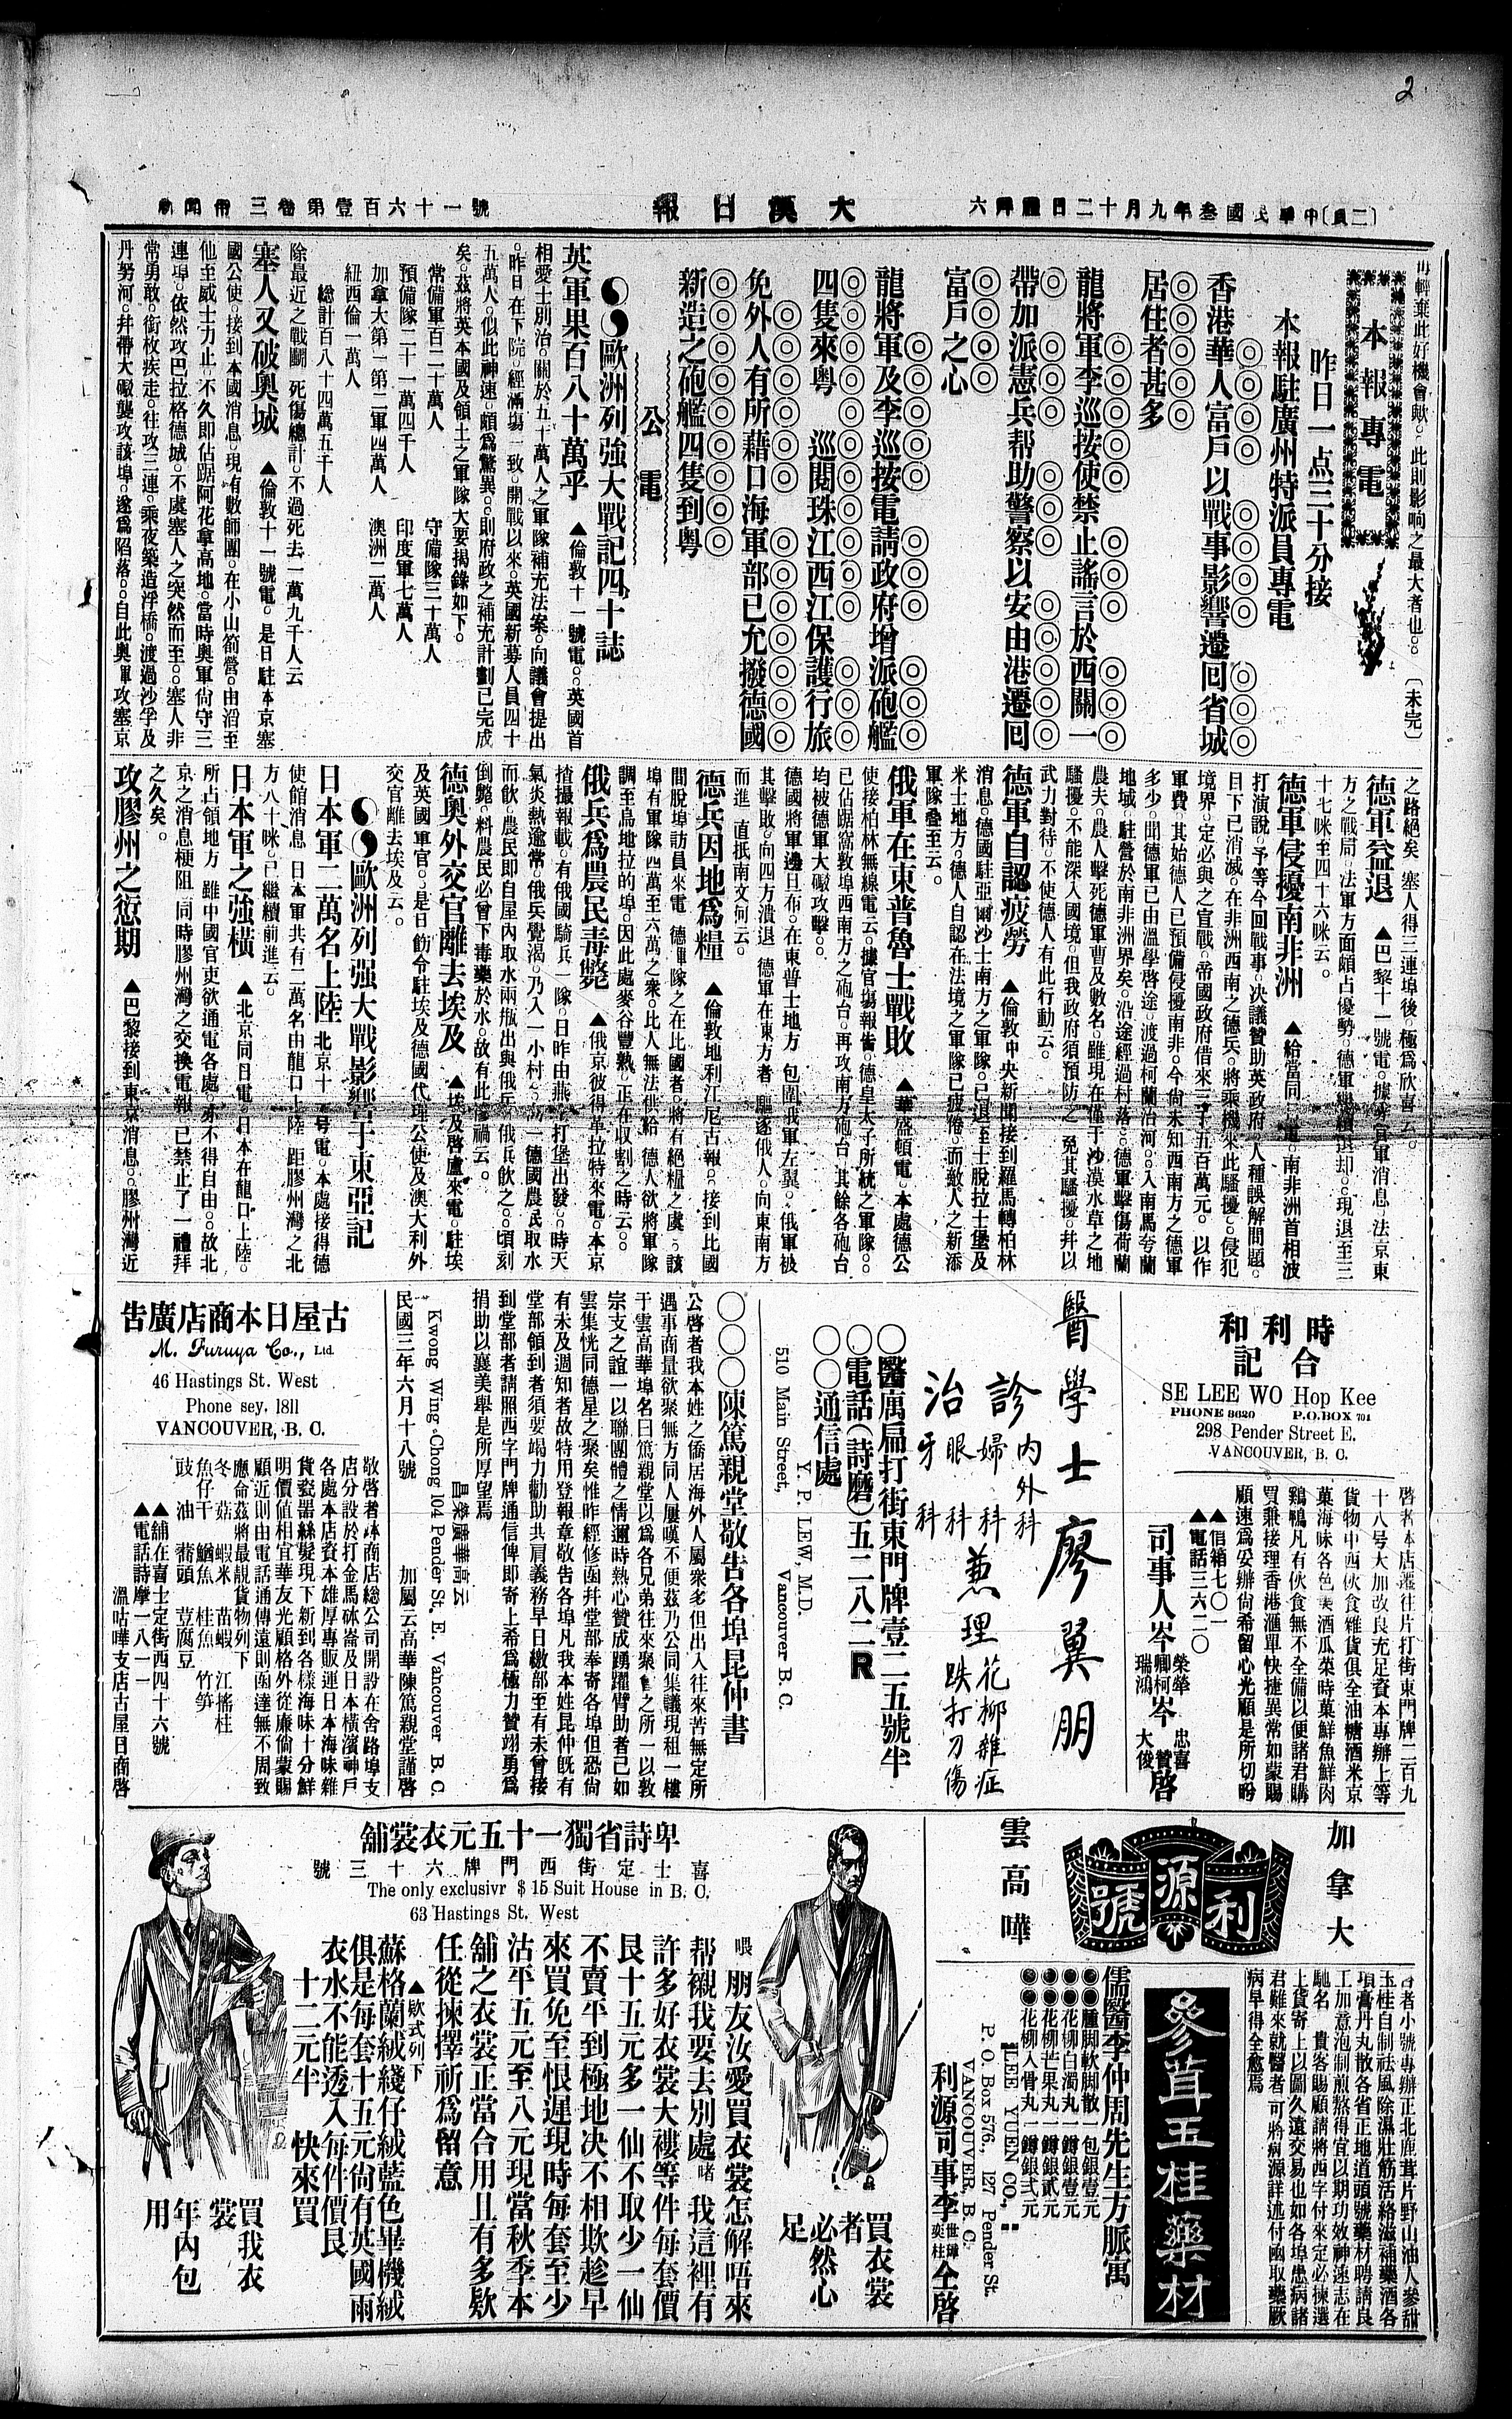 2
(二頁)中華民國叁年九月十二日禮拜六
大漢日報
新聞帋 三卷第壹百六十一號
再輕棄此好機會歟。此則影响之最大者也。〔未完〕
本報專電
昨日一点三十分接
本報駐廣州特派員專電
香港華人富戶以戰事影響遷回省城
居住者甚多
龍將軍李巡按使禁止謠言於西關一
帶加派憲兵帮助警察以安由港遷回
富戶之心
龍將軍及李巡按電請政府增派砲艦
四隻來粵 巡閱珠江西江保護行旅
免外人有所藉口海軍部已允撥德國
新造之砲艦四隻到粵
公電
歐洲列強大戰記四十誌
英軍果百八十萬乎 ▲倫敦十一號電。英國首
相愛士別治。關於五十萬人之軍隊補充法案。向議會提出
。昨日在下院。經滿塲一致。開戰以來。英國新募人員四十
五萬人。似此神速。頗爲驚異。則府政之補充計劃已完成
矣。茲將英本國及領土之軍隊大要揭錄如下。
常備軍百二十萬人 守備隊三十萬人
預備隊二十一萬四千人 印度軍七萬人
加拿大第一第二軍四萬人 澳洲二萬人
紐西倫一萬人
總計百八十四萬五千人
除最近之戰鬬 死傷總計。不過死去一萬九千人云
塞人又破奧城 ▲倫敦十一號電。是日駐本京塞
國公使。接到本國消息。現有數師團。在小山劄營。由沿至
他至威士力止。不久即佔踞阿花拿高地。當時奧軍尙守三
連埠。依然攻巴拉格德城。不虞塞人之突然而至。塞人非
常勇敢。銜枚疾走。往攻三連。乘夜築造浮橋。渡過沙孚及
丹努河。幷帶大礮襲攻該埠。遂爲陷落。自此奧軍攻塞京
之路絕矣 塞人得三連埠後。極爲欣喜云。
德軍益退 ▲巴黎十一號電。據陸官軍消息。法京東
方之戰局。法軍方面頗占優勢。德軍繼續退却。現退至三
十七咪至四十六咪云。
德軍侵擾南非洲 ▲給當同日電。南非洲首相波
打演說。予等今回戰事。決議贊助英政府。人種誤解問題。
目下已消滅。在非洲西南之德兵。將乘機來此騷擾。侵犯
境界。定必與之宣戰。帝國政府借來三千五百萬元。以作
軍費。其始德人已預備侵擾南非。今尙未知西南方之德軍
多少。聞德軍已由溫學啓途。渡過柯蘭治河。入南馬夸蘭
地域。駐營於南非洲界矣。沿途經過村落。德軍擊傷荷蘭
農夫。農人擊死德軍曹及數名。雖現在僅于沙漠水草之地
騷擾。不能深入國境。但我政府須預防之。免其騷擾。幷以
武力對待。不使德人有此行動云。
德軍自認疲勞 ▲倫敦中央新聞接到羅馬轉柏林
消息。德國駐亞爾沙士南方之軍隊。已退至士脫拉士堡及
米士地方。德人自認在法境之軍隊已疲倦。而敵人之新添
軍隊叠至云。
俄軍在東普魯士戰敗 ▲華盛頓電。本處德公
使接柏林無線電云。據官塲報告。德皇太子所統之軍隊。
已佔踞窩敦埠西南方之砲台。再攻南方砲台。其餘各砲台
均被德軍大礮攻擊。
德國將軍邊旦布。在東普士地方。包圍我軍左翼。俄軍被
其擊敗。向四方潰退。德軍在東方者。驅逐俄人。向東南方
而進。直抵南文何云。
德兵因地爲糧 ▲倫敦地利江尼古報。接到比國
間脫埠訪員來電。德軍隊之在比國者。將有絕糧之虞。該
埠有軍隊四萬至六萬之衆。比人無法供給。德人欲將軍隊
調至烏地拉的埠。因此處麥谷豐熟。正在收割之時云。
俄兵爲農民毒斃 ▲俄京彼得革拉特來電。本京
揸撮報載。有俄國騎兵一隊。日昨由燕打堡出發。時天
氣炎熱逾常。俄兵覺渴。乃入一小村。向一德國農民取水
而飲。農民即自屋內取水兩瓶出與俄兵。俄兵飲之。頃刻
倒斃。料農民必曾下毒藥於水。故有此慘禍云。
德奧外交官離去埃及 ▲埃及啓盧來電。駐埃
及英國軍官。是日飭令駐埃及德國代理公使及澳大利外
交官離去埃及云。
歐洲列强大戰影響于東亞記
日本軍二萬名上陸 北京十一号電。本處接得德
使館消息。日本軍共有二萬名由龍口上陸。距膠州灣之北
方八十咪。已繼續前進云。
日本軍之強橫 ▲北京同日電。日本在龍口上陸。
所占領地方。雖中國官吏欲通電各處。亦不得自由。故北
京之消息梗阻。同時膠州灣之交換電報。已禁止了一禮拜
之久矣。
攻膠州之愆期 ▲巴黎接到東京消息。膠州灣近
時利和合記
SE LEE WO Hop Kee
PHONE 8620 P.O.BOX 701
298 Pender Street E.
VANCOUVER, B. C.
啓者本店遷往片打街東門牌二百九
十八号大加改良充足資本專辦上等
貨物中西伙食雜貨俱全油糖酒米京
菓海味各色美酒瓜菜時菓鮮魚鮮肉
鷄鴨凡有伙食無不全備以便諸君購
買兼接理香港滙單快捷異常如蒙賜
顧速爲妥辦尙希留心光顧是所切盼
▲信箱七〇一
▲電話三六二〇
司事人岑 榮犖 卿柯 瑞鴻 岑 忠喜 贊 大俊 啓
醫學士廖翼朋
診內外科
婦科
治眼科
牙科
兼理花柳雜症
跌打刀傷
〇醫寓扁打街東門牌壹二五號半
〇電話(詩磨)五二八二R
〇〇通信處
Y. P. LEW, M.D.
510 Main Street, Vancouver B. C.
〇〇〇陳篤親堂敬告各埠昆仲書
公啓者我本姓之僑居海外人屬衆多但出入往來苦無定所
遇事商量欲聚無方同人屢嘆不便茲乃公同集議現租一樓
于雲高華埠名曰篤親堂以爲各兄弟往來聚會之所一以敦
宗支之誼一以聯團體之情邇時熱心贊成踴躍臂助者已如
雲集恍同德星之聚矣惟昨經修函幷堂部奉寄各埠但恐尙
有未及週知者故特用登報章敬告各埠凡我本姓昆仲旣有
堂部領到者須要竭力勸助共肩義務早日繳部至有未曾接
到堂部者請照四字門牌通信俾即寄上希爲極力贊翊勇爲
捐助以襄美舉是所厚望焉
Kwong Wing Chong 104 Pender St. E. Vancouver B. C.
民國三年六月十八號 加屬云高華陳篤親堂謹啓
古屋日本商店廣告
M. Furuya Co., Ltd.
46 Hastings St. West
Phone sey. 1811
VANCOUVER, B. C.
敬啓者本商店総公司開設在舍路埠支
店分設於打金馬砵崙及日本橫濱神戶
各處本店資本雄厚專販運日本海味雜
貨瓷器絲髮現下新到各樣海味十分鮮
明價值相宜華友光顧格外從廉倘蒙賜
顧近則由電話通傳遠則函達無不周致
應命茲將最靚貨物列下
冬菇 蝦米 苗蝦 江瑤柱
魚仔干 鰌魚 桂魚 竹笋
豉油 蕎頭 荳腐豆
▲舖在喜士定街西四十六號
▲電話詩摩一八一一
溫咕嘩支店古屋日商啓
加拿大
利源號
雲高嘩
參茸玉桂藥材
啓者小號專辦正北鹿茸片野山油人參甜
玉桂自制祛風除濕壯筋活絡滋補藥酒各
項膏丹丸散各省正地道頭號藥材聘請良
工加意泡制煎熬得宜以期功效神速志在
馳名 貴客賜顧請將西字付來定必揀選
上貨寄上以圖久遠交易也如各埠患病諸
君雖來就醫者可將病源詳述付函取藥厥
病早得全愈焉
儒醫李仲周先生方脈寓
腫脚軟脚散一包銀壹元
花柳白濁丸一罇銀壹元
花柳芒果丸一罇銀貳元
花柳入骨丸一罇銀弍元
"LEE YUEN CO.,"
P. O. Box 576., 127 Pender St.
VANCOUVER, B. C.
利源司事李 世璋 奕桂 仝啓
卑詩省獨一十五元衣裳舖
喜士定街西門牌六十三號
The only exclusivr $ 15 Suit House in B. C.
63 Hastings St. West
喂 朋友汝愛買衣裳怎解唔來
帮襯我要去別處啫 我這裡有
許多好衣裳大褸等件每套價
艮十五元多一仙不取少一仙
不賣平到極地決不相欺趁早
來買免至恨遲現時每套至少
沽平五元至八元現當秋季本
舖之衣裳正當合用且有多欵
任從揀擇祈爲留意
▲欵式列下
蘇格蘭絨綫仔絨藍色畢機絨
俱是每套十五元尙有英國雨
衣水不能透入每件價艮
十二元半 快來買
買衣裳
者
必然心
足
買我衣
裳
年內包
用